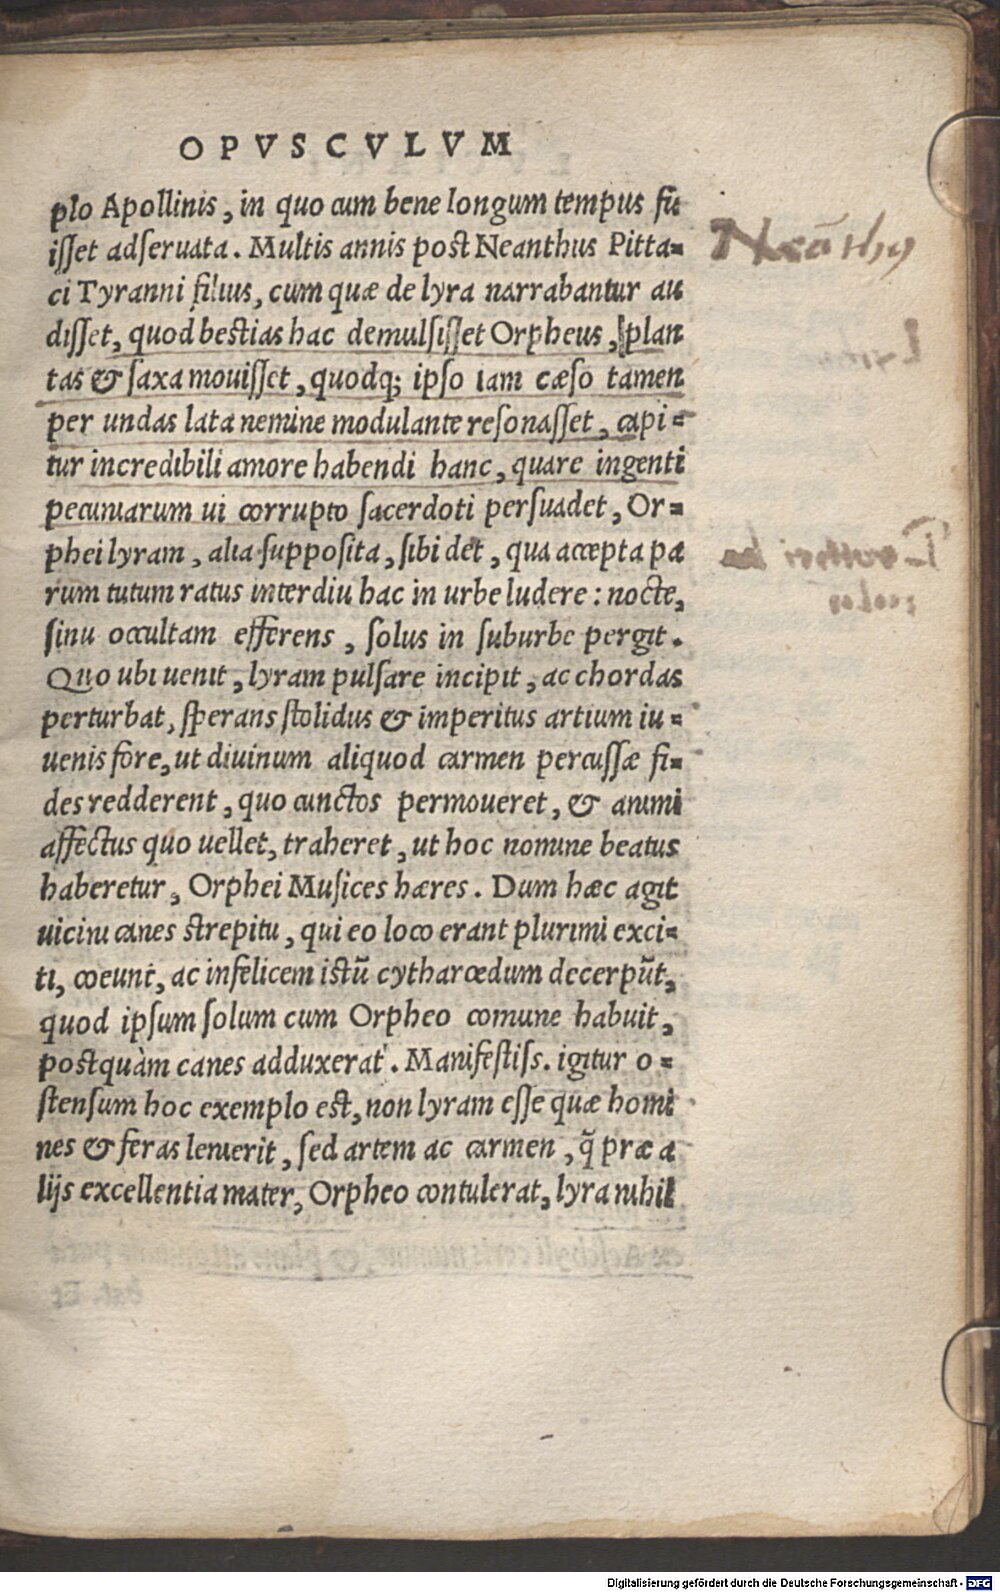 OPVSCVLVM
plo Apollinis, in quo cum bene longum tempus fu
isset adseruata. Multis annis post Neanthus Pitta-
ci Tyranni filius, cum quæ de lyra narrabantur au
disset, quod bestias hac demulsisset Orpheus, plan
tas & saxa mouisset, quodq; ipso iam cæso tamen
per undas lata nemine modulante resonasset, capi-
tur incredibili amore habendi hanc, quare ingenti
pecuniarum ui corrupto sacerdoti persuadet, Or-
phei lyram, alia supposita, sibi det, qua accepta pa
rum tutum ratus interdiu hac in urbe ludere: nocte,
sinu occultam efferens, solus in suburbe pergit.
Quo ubi uenit, lyram pulsare incipit, ac chordas
perturbat, sperans stolidus & imperitus artium iu-
uenis fore, ut diuinum aliquod carmen percussæ fi-
des redderent, quo cunctos permoueret, & animi
affectus quo uellet, traheret, ut hoc nomine beatus
haberetur, Orphei Musices hæres. Dum hæc agit
uicini canes strepitu, qui eo loco erant plurimi exci-
ti, coeunt, ac infelicem istũ cytharœdum decerpũt,
quod ipsum solum cum Orpheo comune habuit,
postquàm canes adduxerat. Manifestiss. igitur o-
stensum hoc exemplo est, non lyram esse quæ homi
nes & feras lenierit, sed artem ac carmen, q̃ præ a
lijs excellentia mater, Orpheo contulerat, lyra nihil
Neãthꝰ
Digitalisierung gefördert durch die Deutsche Forschungsgemeinschaft - DFG